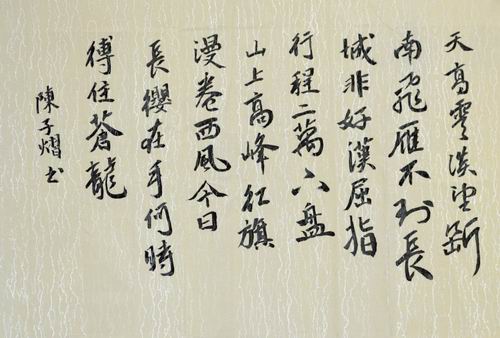 天高雲淡望斷
南飛雁不到長
城非好漢屈指
行程二萬六盤
山上高峰紅旗
漫卷西風今日
長纓在手何時
縛住蒼龍
陳子熠书